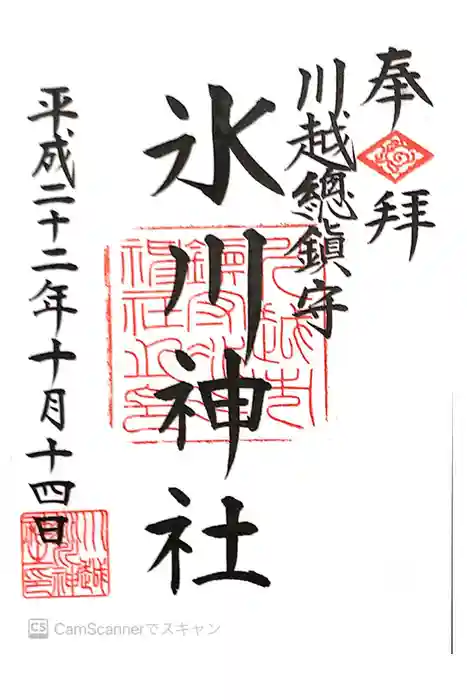 奉拝
川越總鎮守
氷川神社
平成二十二年十月十四日
CamScannerでスキャン